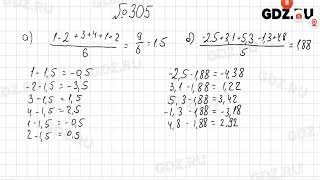 №305
GDZ.RU
а) (1-2+3+4+1+2)/6 = 9/6 = 1.5
б) (-2,5+3,1-5,3-1,3+4,8)/5 = 1.88
1-1,5=-0,5
-2-1,5=-3,5
3-1,5=1,5
4-1,5=2,5
1-1,5=-0,5
2-1,5=0,5
-2,5-1,88=-4,38
3,1-1,88=1,22
5,3-1,88=3,42
-1,3-1,88=-3,18
4,8-1,88=2,92